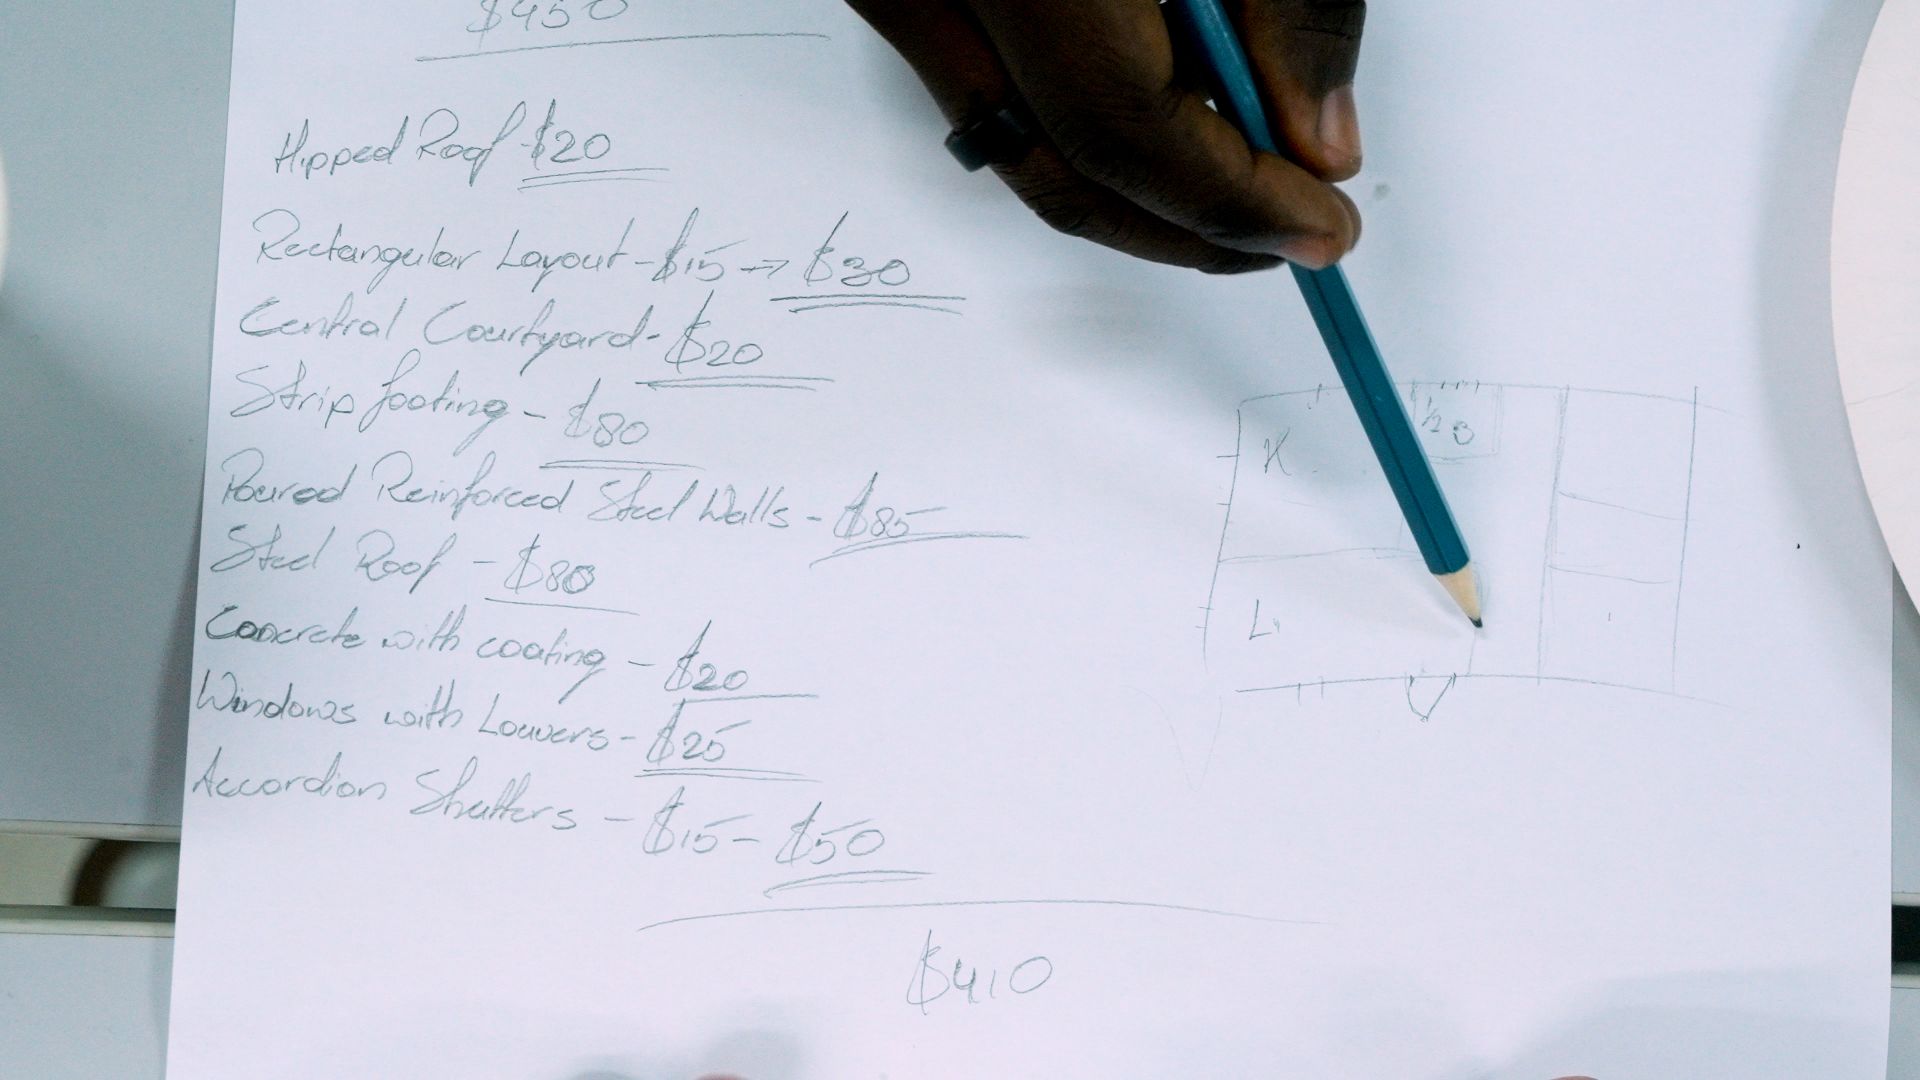 $450
Hipped Roof - $20
Rectangular Layout - $15 → $30
Central Courtyard - $20
Strip footing - $80
Poured Reinforced Steel Walls - $85
Steel Roof - $80
Concrete with coating - $20
Windows with Louvers - $25
Accordion Shutters - $15 - $50
$410
1/2 B
K
L